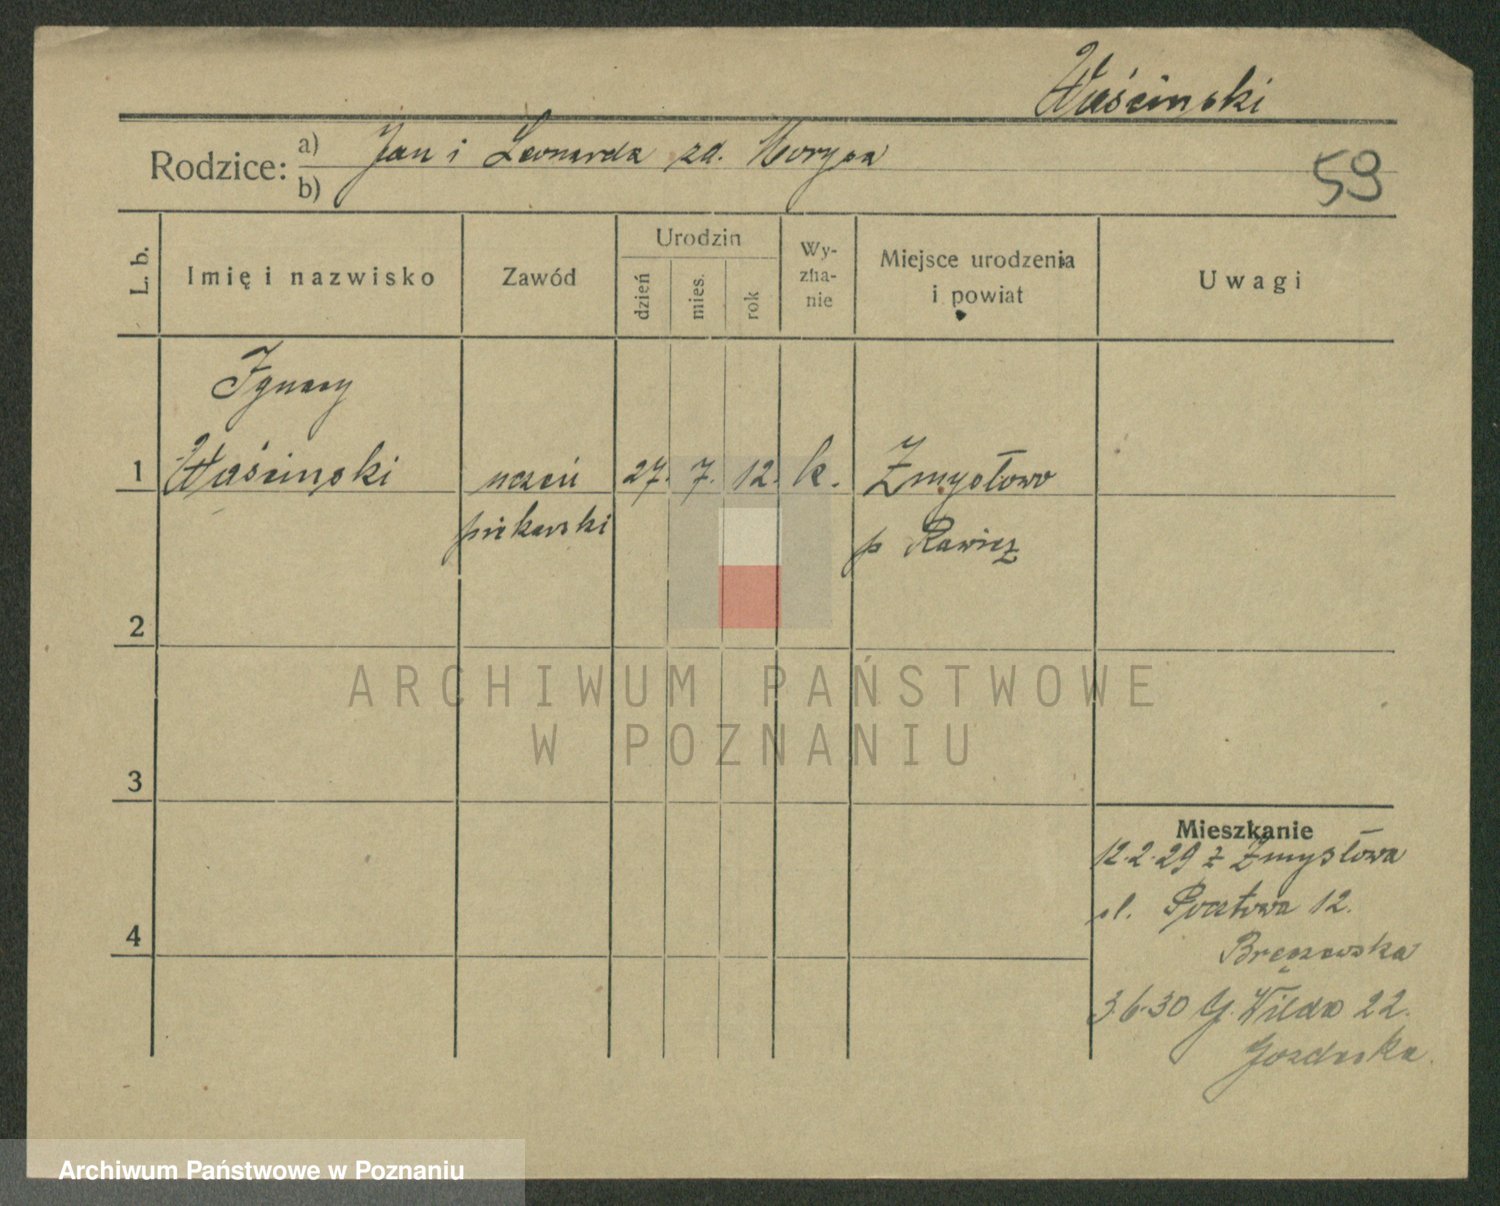 Waścinski
Rodzice: a) Jan i Leonarda zd.
b)
59
L. b.
Imię i nazwisko
Zawód
Urodzin
dzień
mies.
rok
Wy-
zna-
nie
Miejsce urodzenia
i powiat
Uwagi
Ignacy
1 Waścinski uczeń 27. 7. 12. k. Zmysłowo
piekarski p Rawicz
2
3
4
Mieszkanie
12.2.29 z Zmysłowa
ul. Pocztowa 12.
3.6.30 G. Wilda 22.
ARCHIWUM PAŃSTWOWE
W POZNANIU
Archiwum Państwowe w Poznaniu